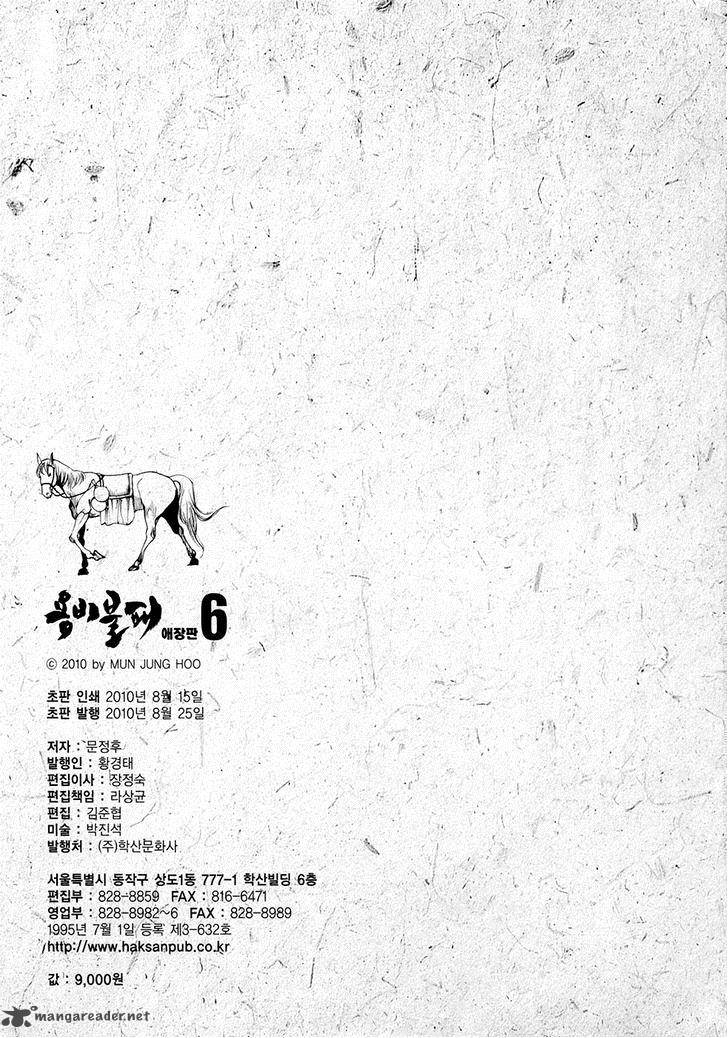 용비불패 애장판 6
ⓒ 2010 by MUN JUNG HOO
초판 인쇄 2010년 8월 15일
초판 발행 2010년 8월 25일
저자 : 문정후
발행인 : 황경태
편집이사 : 장정숙
편집책임 : 라상균
편집 : 김준협
미술 : 박진석
발행처 : (주)학산문화사
서울특별시 동작구 상도1동 777-1 학산빌딩 6층
편집부 : 828-8859 FAX : 816-6471
영업부 : 828-8982~6 FAX : 828-8989
1995년 7월 1일 등록 제3-632호
http://www.haksanpub.co.kr
값 : 9,000원
mangareader.net